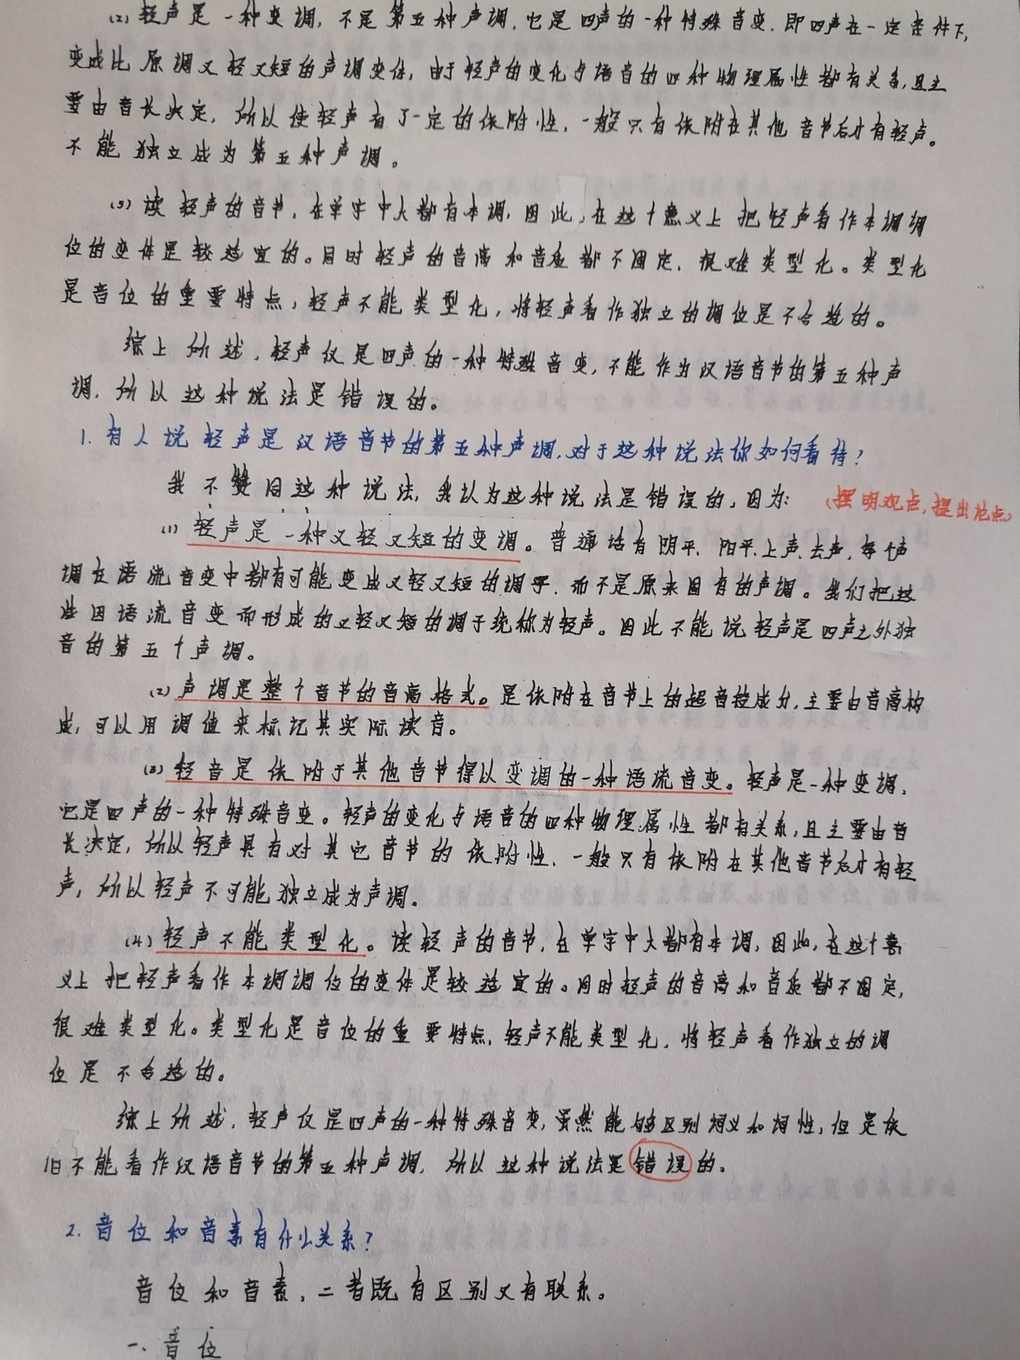 (2) 轻声是一种变调,不是第五种声调,它是四声的一种特殊音变.即四声在一定条件下,
变成比原调又轻又短的声调变体,由于轻声的变化与语音的四种物理属性都有关系,且主
要由音长决定,所以使轻声有了一定的依附性,一般只有依附在其他音节后才有轻声。
不能独立成为第五种声调。
(3) 读轻声的音节,在单字中大都有本调,因此,在这个意义上把轻声看作本调调
位的变体是较适宜的。同时轻声的音高和音质都不固定,很难类型化。类型化
是音位的重要特点,轻声不能类型化,将轻声看作独立的调位是不合适的。
综上所述,轻声仅是四声的一种特殊音变,不能作为汉语音节的第五种声
调,所以这种说法是错误的。
1. 有人说轻声是汉语音节的第五种声调,对于这种说法你如何看待?
我不赞同这种说法,我认为这种说法是错误的,因为: (摆明观点,提出论点)
(1) 轻声是一种又轻又短的变调。普通话有阴平、阳平、上声、去声,每个声
调在语流音变中都有可能变成又轻又短的调子,而不是原来固有的声调。我们把这
些因语流音变而形成的又轻又短的调子统称为轻声。因此不能说轻声是四声之外独
音的第五个声调。
(2) 声调是整个音节的音高格式。是依附在音节上的超音段成分,主要由音高构
成,可以用调值来标记其实际读音。
(3) 轻音是依附于其他音节得以变调的一种语流音变。轻声是一种变调,
它是四声的一种特殊音变。轻声的变化与语音的四种物理属性都有关系,且主要由音
长决定,所以轻声具有对其它音节的依附性,一般只有依附在其他音节后才有轻
声,所以轻声不可能独立成为声调。
(4) 轻声不能类型化。读轻声的音节,在单字中大都有本调,因此,在这个意
义上把轻声看作本调调位的变体是较适宜的。同时轻声的音高和音质都不固定,
很难类型化。类型化是音位的重要特点,轻声不能类型化,将轻声看作独立的调
位是不合适的。
综上所述,轻声仅是四声的一种特殊音变,虽然能够区别词义和词性,但是依
旧不能看作汉语音节的第五种声调,所以这种说法是错误的。
2. 音位和音素有什么关系?
音位和音素,二者既有区别又有联系。
一、音位